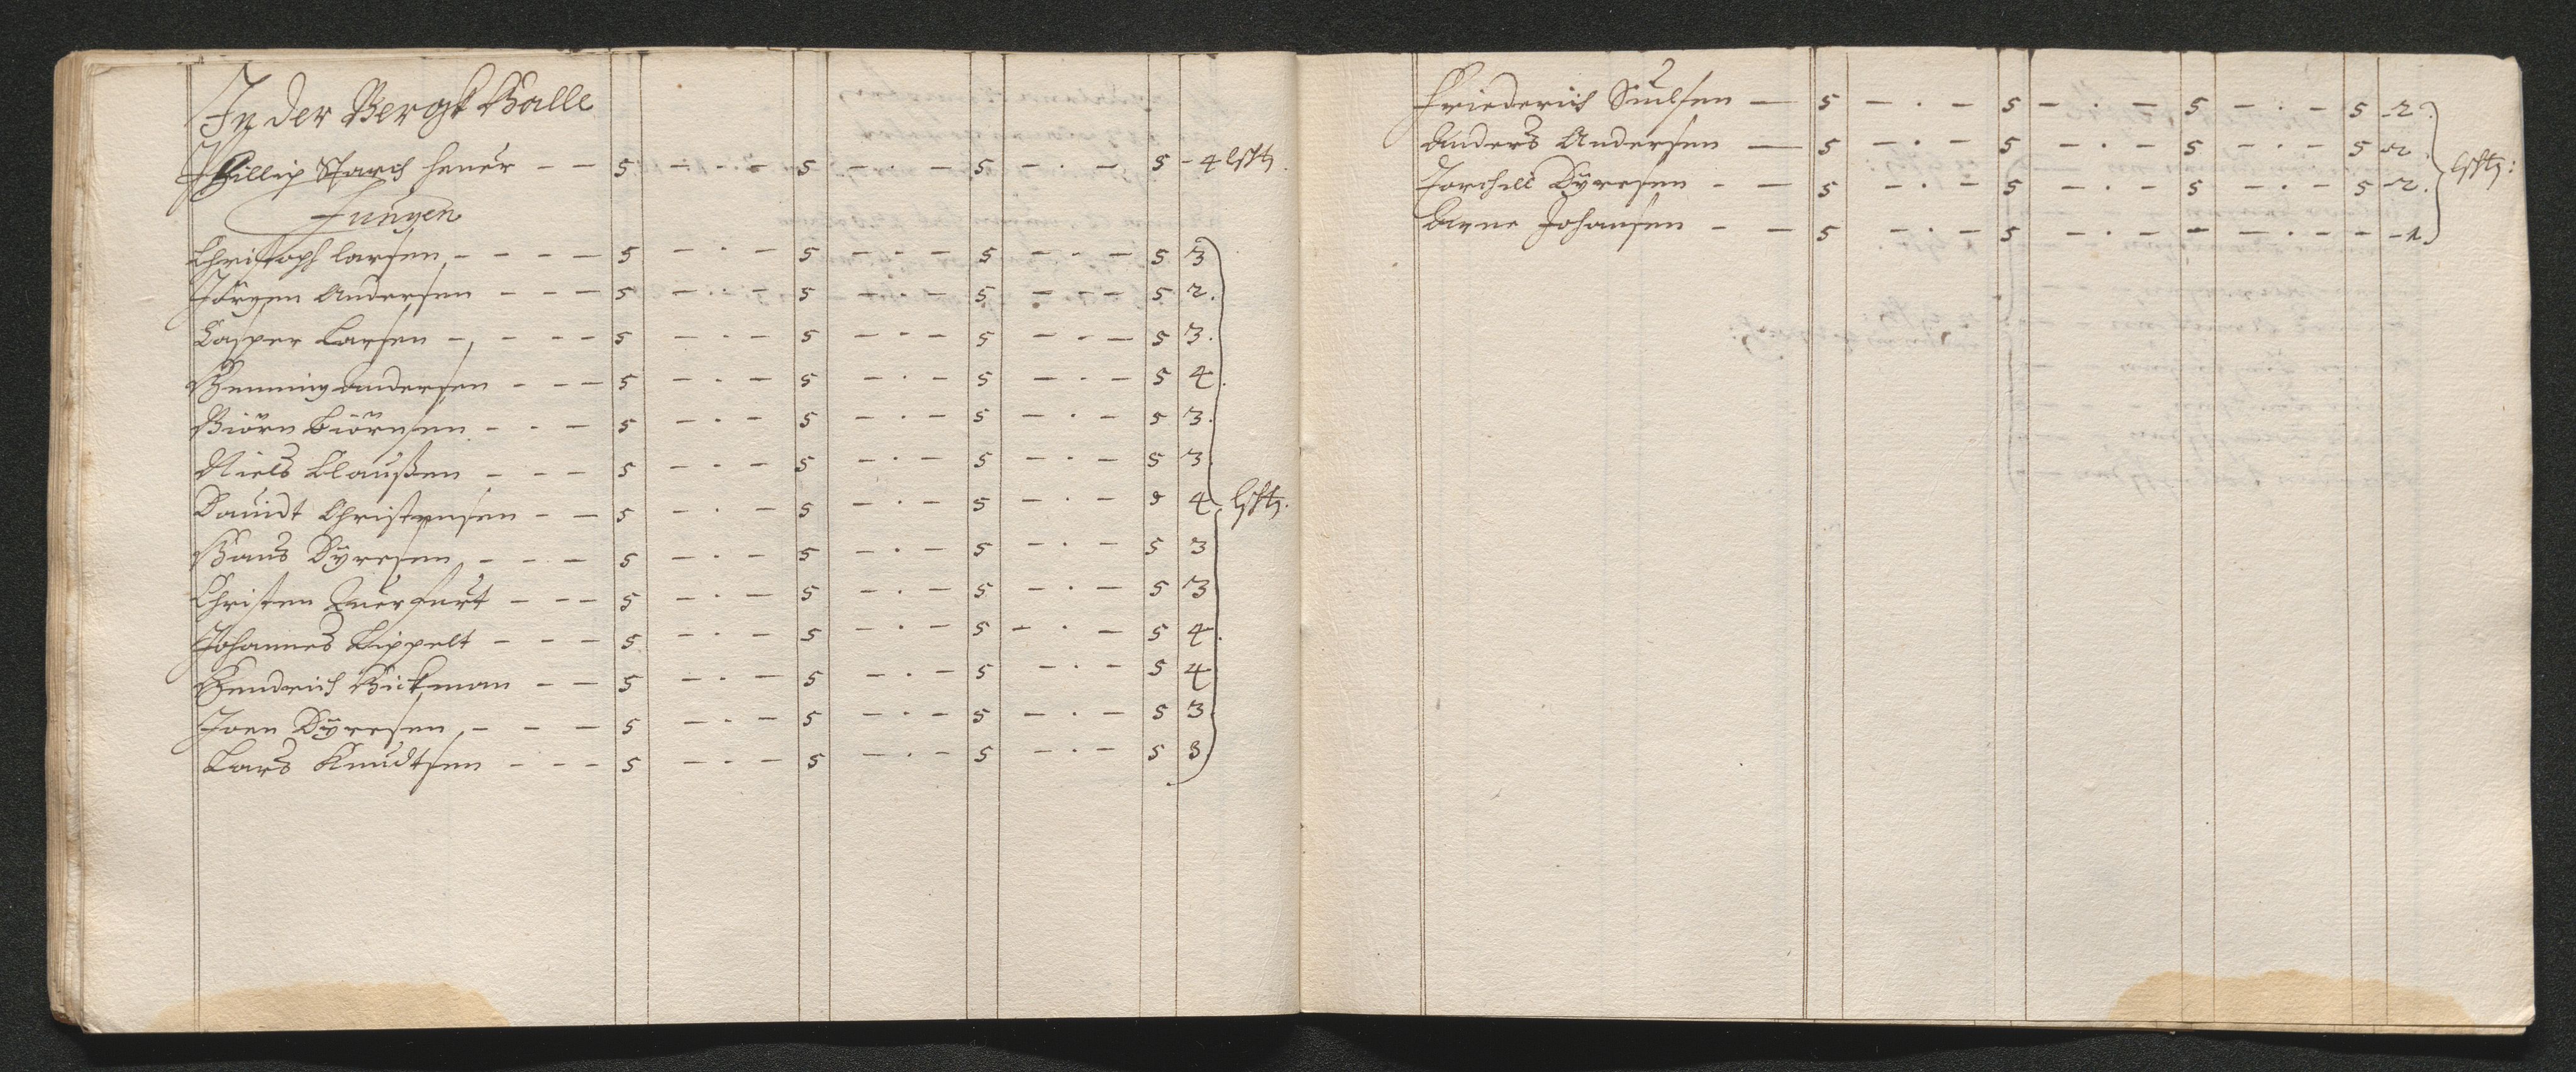 In der Bergk Halle
Phillip Starch heuer – – 5 – · – 5 – · – 5 – · – 5 – 4 lsth.
Jungen
Christoph Larsen – – – – 5 – · – 5 – · – 5 – · – 5 3
Jörgen Andersen – – – 5 – · – 5 – · – 5 – – – 5 2.
Casper Larsen – – – – 5 – · – 5 – · – 5 – · – 5 3.
Henning Andersen – – – 5 – · – 5 – · – 5 – · – 5 4.
Biörn Biörnsen – – – 5 – · – 5 – · – 5 – · – 5 3.
Niels Claußen – – – 5 – · – 5 – · – 5 – · – 5 3.
Dauidt Christensen – – 5 – · – 5 – · – 5 – · – 5 4 lsth.
Hans Dÿresen – – – 5 – · – 5 – · – 5 – · – 5 3
Christen Querfurt – – – 5 – · – 5 – · – 5 – · – 5 3
Johannes Lippelt – – – 5 – · – 5 – · – 5 – · – 5 4.
Hendrich Bickman – – 5 – · – 5 – · – 5 – · – 5 4
Joen Dÿresen – – – 5 – · – 5 – · – 5 – · – 5 3
Lars Knudtsen – – – 5 – · – 5 – · – 5 – · – 5 3.
Friederich Siulsen – 5 – · – 5 – · – 5 – · – 5 2.
Anders Andersen – 5 – · – 5 – · – 5 – · – 5 2.
Torchild Dÿresen – – 5 – · – 5 – · – 5 – · – 5 2. lsth:
Arne Johansen – – 5 – · – 5 – · – – – · – – – 1.